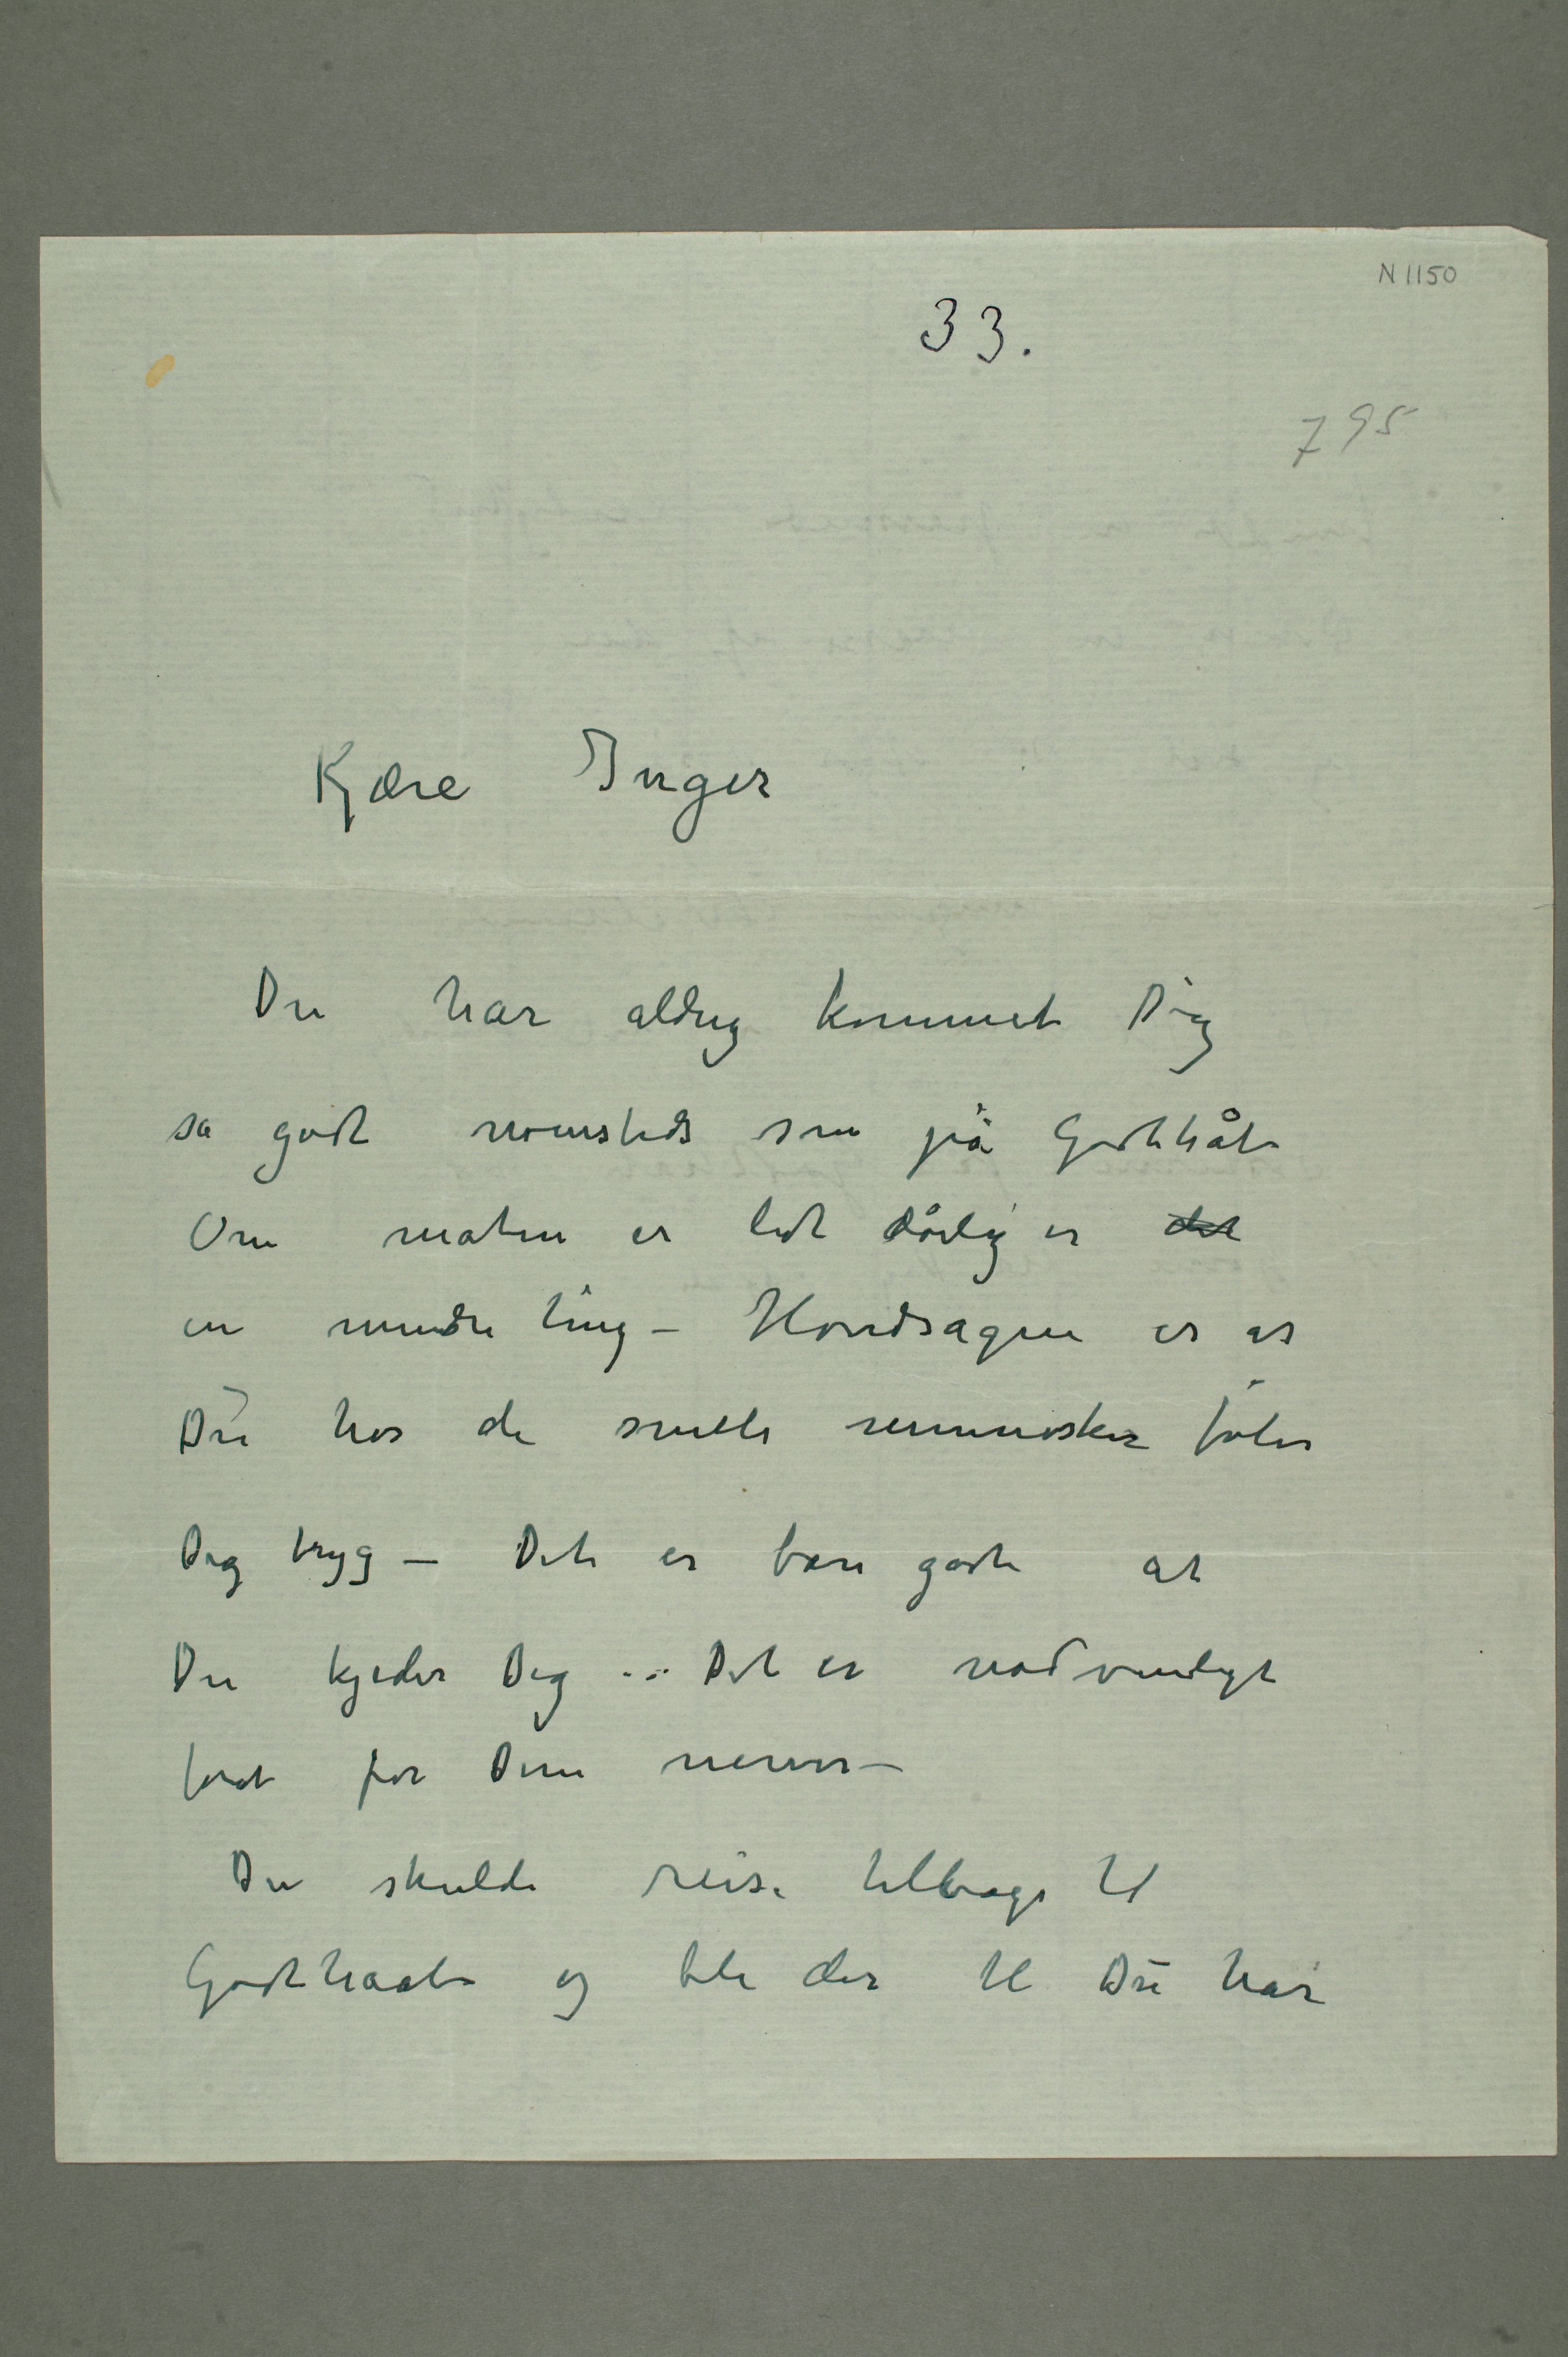 N 1150
33.
795
Kjære Inger
Du har aldrig kommet Dig
sa godt nomsteds som på Godthåb
Om maten er lidt dårlig er det
en mindre ting – Hovedsagen er at
Du hos de snille mennesker føler
Dig tryg – Det er bare godt at
Du kjeder Dig … Det er nødvendigt
for Dine nerver –
Du skulde reise tilbage til
Godthaab og bli der til Du har